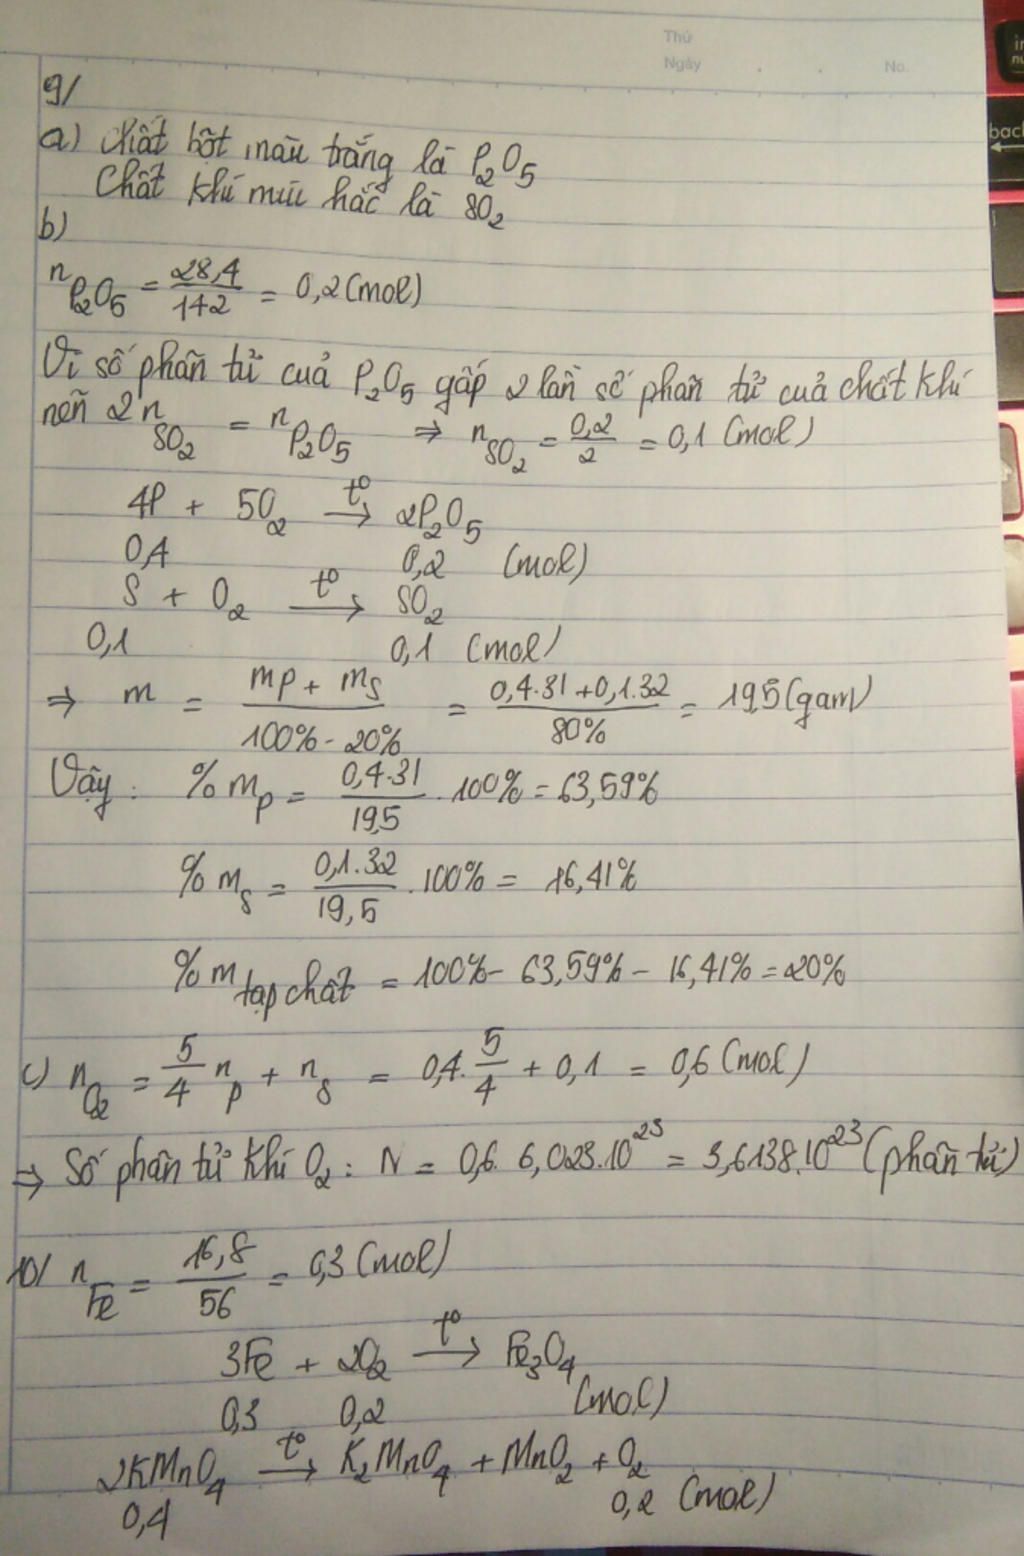 Thứ
Ngày . . No.
9/
a) Chất bột màu trắng là P₂O₅
Chất khí mùi hắc là SO₂
b)
n P₂O₅ = 28,4/142 = 0,2 (mol)
Vì số phân tử của P₂O₅ gấp 2 lần số phân tử của chất khí
nên 2n SO₂ = n P₂O₅ ⇒ n SO₂ = 0,2/2 = 0,1 (mol)
4P + 5O₂ t°→ 2P₂O₅
0,4 0,2 (mol)
S + O₂ t°→ SO₂
0,1 0,1 (mol)
⇒ m = (mP + mS)/(100% - 20%) = (0,4.31 + 0,1.32)/80% = 19,5 (gam)
Vậy : % mP = 0,4.31/19,5 . 100% = 63,59%
% mS = 0,1.32/19,5 . 100% = 16,41%
% m tạp chất = 100% - 63,59% - 16,41% = 20%
c) n O₂ = 5/4 nP + nS = 0,4. 5/4 + 0,1 = 0,6 (mol)
⇒ Số phân tử khí O₂ : N = 0,6. 6,023.10²³ = 3,6138.10²³ (phân tử)
10/ n Fe = 16,8/56 = 0,3 (mol)
3Fe + 2O₂ t°→ Fe₃O₄
0,3 0,2 (mol)
2KMnO₄ t°→ K₂MnO₄ + MnO₂ + O₂
0,4 0,2 (mol)